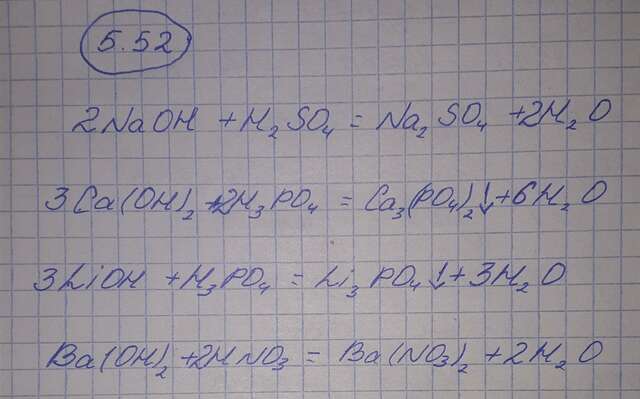 5.52
2NaOH + H₂SO₄ = Na₂SO₄ + 2H₂O
3Ca(OH)₂ + 2H₃PO₄ = Ca₃(PO₄)₂↓ + 6H₂O
3LiOH + H₃PO₄ = Li₃PO₄↓ + 3H₂O
Ba(OH)₂ + 2HNO₃ = Ba(NO₃)₂ + 2H₂O